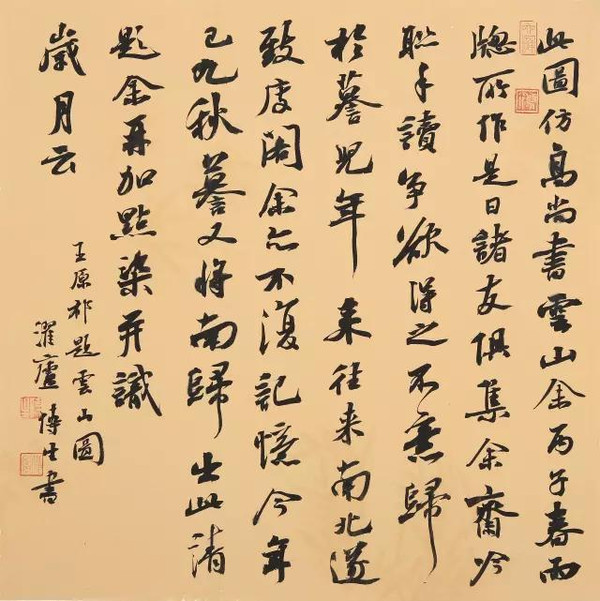 此圖仿高尚書雲山余丙子春雨
牕所作是日諸友俱集余齋吟
聯手讀爭欲得之不意歸
於謩兒年來往來南北遂
致庋閣余亦不復記憶今年
己丑秋謩又將南歸出此請
題余再加點染并識
歲月云
王原祁題雲山圖
濯廬書